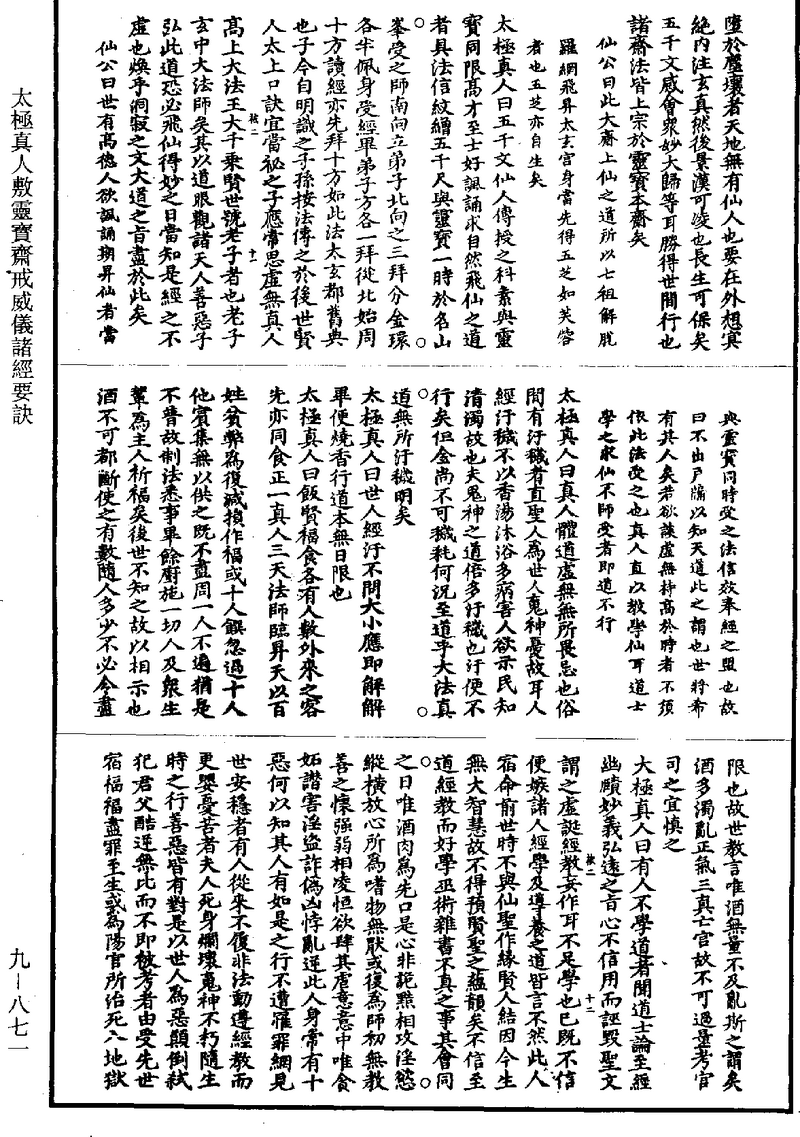 墮於塵壤者天地無有仙人也要在外想寘
絕內注玄真然後景漢可凌也長生可保矣
五千文感會衆妙大歸等耳勝得世間行也
諸齋法皆上宗於靈寶本齋矣
仙公曰此大齋上仙之道所以七祖解脫
羅網飛昇太玄宫身當先得五芝如芙蓉
者也五芝亦自生矣
太極真人曰五千文仙人傳授之科素與靈
寶同限高才至士好諷誦求自然飛仙之道
者具法信紋繒五千尺與靈寶一時於名山
峯受之師南向立弟子北向之三拜分金環
各半佩身受經畢弟子方各一拜從北始周
十方讀經亦先拜十方如此法太玄都舊典
也子今自明識之子孫按法傳之於後世賢
人太上口訣宜當祕之子應常思虛無真人
高上大法王大千乘賢世號老子者也老子
玄中大法師矣其以道眼觀諸天人善惡子
弘此道恐必飛仙得妙之日當知是經之不
虛也煥乎洞寂之文大道之旨盡於此矣
仙公曰世有高德人欲諷誦期昇仙者當
與靈寶同時受之法信效奉經之盟也故
曰不出戶牖以知天道此之謂也世將希
有其人矣若欲談虛無持高於時者不須
依此法受之也真人直以教學仙耳道士
學之求仙不師受者即道不行
太極真人曰真人體道虛無無所畏忌也俗
間有汙穢者直聖人為世人鬼神憂故耳人
經汙穢不以香湯沐浴多病害人欲示民知
清濁故也夫鬼神之道倍多汙穢也汙便不
行矣但金尚不可穢耗何況至道乎大法真
道無所汙穢明矣
太極真人曰世人經汙不問大小應即解解
畢便燒香行道本無日限也
太極真人曰飯賢福食各有人數外來之客
先亦同食正一真人三天法師臨昇天以百
姓貧弊為復減損作福或十人饌忽過十人
他賓集無以供之既不盡周一人不遍猶是
不普故制法悉事畢餘廚施一切人及衆生
輩為主人祈福矣後世不知之故以相示也
酒不可都斷使之有數隨人多少不必令盡
限也故世教言唯酒無量不及亂斯之謂矣
酒多濁亂正氣三真亡宫故不可過量考官
司之宜慎之
太極真人曰有人不學道者聞道士論至經
幽賾妙義弘遠之旨心不信用而誣毀聖文
謂之虛誕經教妄作耳不足學也已既不信
便嫉諸人經學及導養之道皆言不然此人
宿命前世時不與仙聖作緣賢人結因今生
無大智慧故不得預賢聖之蘊韻矣不信至
道經教而好學巫術雜書不真之事其會同
之日唯酒肉為先口是心非詭黠相攻淫慾
縱橫放心所為嗜物無猒或復為師初無教
善之懷強弱相凌恒欲肆其虐意意中唯貪
妬譖害淫盜詐偽凶悖亂逆此人身常有十
惡何以知其人有如是之行不遭罹罪網見
世安穩者有人從來不復非法動遵經教而
更嬰憂苦者夫人死身爛壞鬼神不朽隨生
時之行善惡皆有對是以世人為惡顛倒弒
犯君父酷逆無比而不即被考者由受先世
宿福福盡罪至生或為陽官所治死入地獄
太極真人敷靈寶齋戒威儀諸經要訣
九－八七一